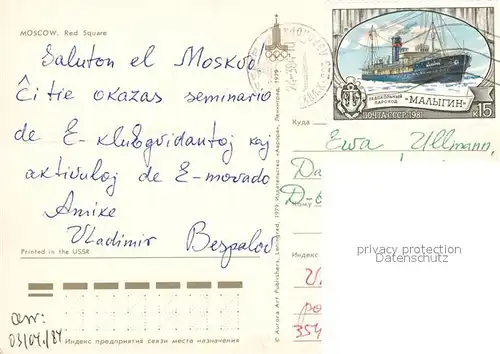 MOSCOW. Red Square
Saluton el Moskvo!
Ĉi tie okazas seminario
de E-klubgvidantoj kaj
aktivuloj de E-movado
Amike
Vladimir Bespalov
Printed in the USSR
Индекс предприятия связи места назначения
© Aurora Art Publishers, Leningrad, 1979 Издательство «Аврора», Ленинград, 1979
ЛЕДОКОЛЬНЫЙ
ПАРОХОД
«МАЛЫГИН»
ПОЧТА СССР 1981
к15
Куда
Ewa Ullmann,
Кому
D-6
Индекс
354
privacy protection
Datenschutz